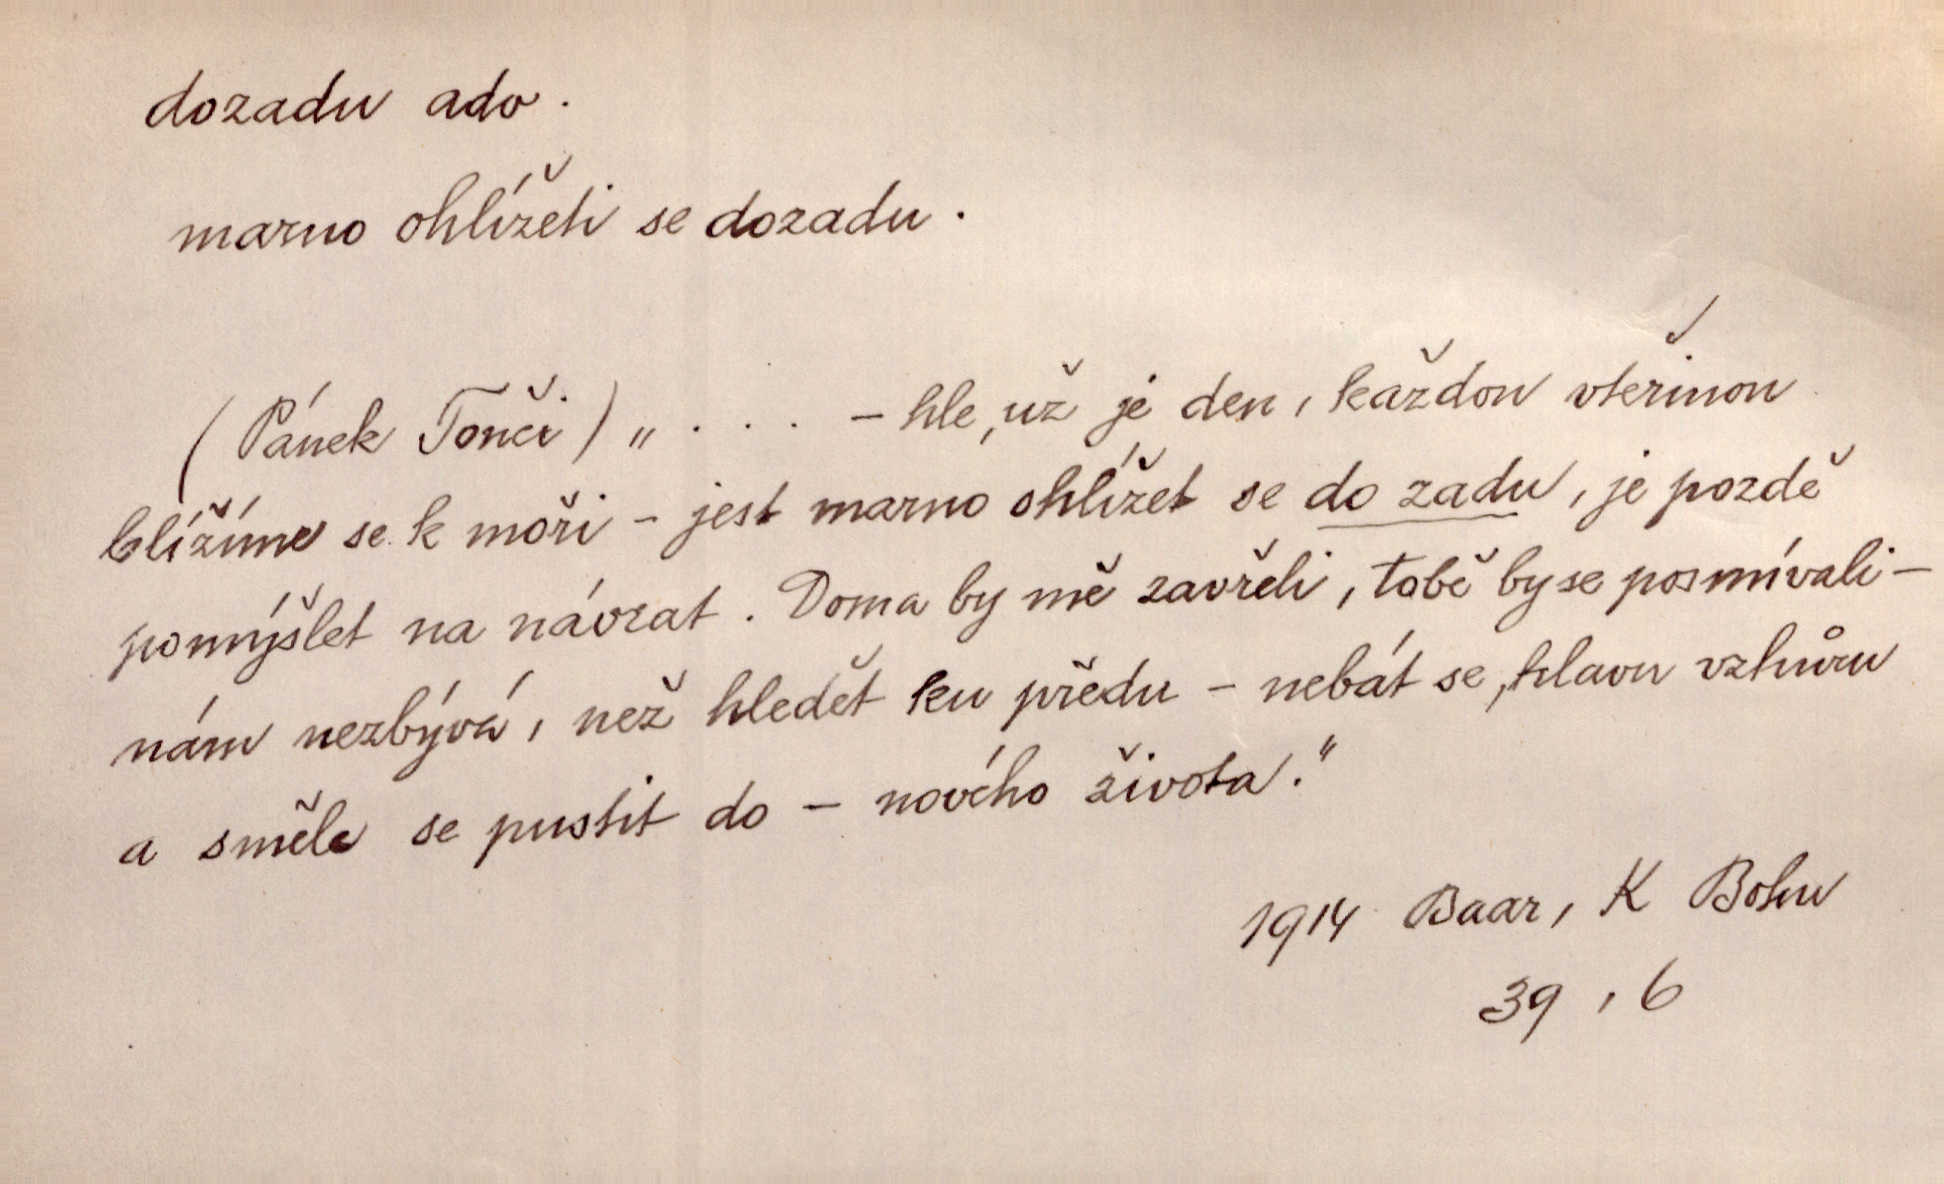 dozadu adv.
marno ohlížeti se dozadu.
(Pánek Tonči) „ . . . – hle, už je den, každou vteřinou
blížíme se k moři – jest marno ohlížet se do zadu, je pozdě
pomýšlet na návrat. Doma by mě zavřeli, tobě by se posmívali –
nám nezbývá, než hledět ku předu – nebát se, hlavu vzhůru
a směle se pustit do – nového života."
1914 Baar, K Bohu
39, 6